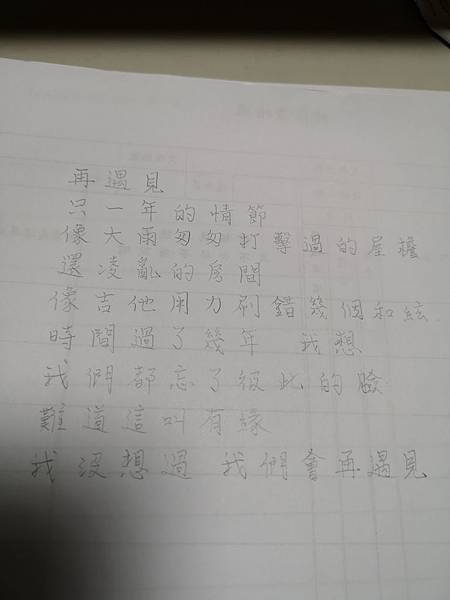 再遇見
只一年的情節
像大雨匆匆打擊過的屋檐
還凌亂的房間
像吉他用力刷錯幾個和絃
時間過了幾年 我想
我們都忘了彼此的臉
難道這叫有緣
我沒想過 我們會再遇見